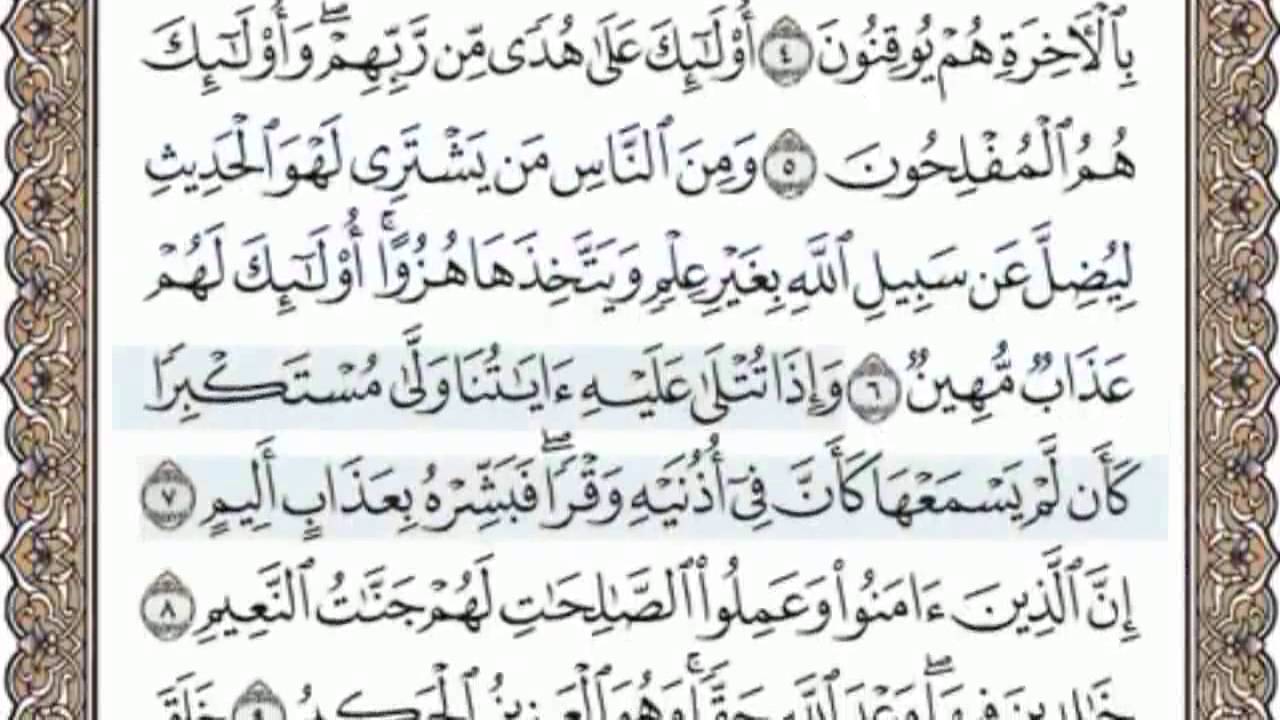 بِٱلْأَخِرَةِ هُمْ يُوقِنُونَ ٤ أُوْلَٰٓئِكَ عَلَىٰ هُدًى مِّن رَّبِّهِمْۖ وَأُوْلَٰٓئِكَ
هُمُ ٱلْمُفْلِحُونَ ٥ وَمِنَ ٱلنَّاسِ مَن يَشْتَرِى لَهْوَ ٱلْحَدِيثِ
لِيُضِلَّ عَن سَبِيلِ ٱللَّهِ بِغَيْرِ عِلْمٍ وَيَتَّخِذَهَا هُزُوًاۚ أُوْلَٰٓئِكَ لَهُمْ
عَذَابٌ مُّهِينٌ ٦ وَإِذَا تُتْلَىٰ عَلَيْهِ ءَايَٰتُنَا وَلَّىٰ مُسْتَكْبِرًا
كَأَن لَّمْ يَسْمَعْهَا كَأَنَّ فِىٓ أُذُنَيْهِ وَقْرًاۖ فَبَشِّرْهُ بِعَذَابٍ أَلِيمٍ ٧
إِنَّ ٱلَّذِينَ ءَامَنُوا۟ وَعَمِلُوا۟ ٱلصَّٰلِحَٰتِ لَهُمْ جَنَّٰتُ ٱلنَّعِيمِ ٨
خَٰلِدِينَ فِيهَاۖ وَعْدَ ٱللَّهِ حَقًّاۚ وَهُوَ ٱلْعَزِيزُ ٱلْحَكِيمُ ٩ خَلَقَ